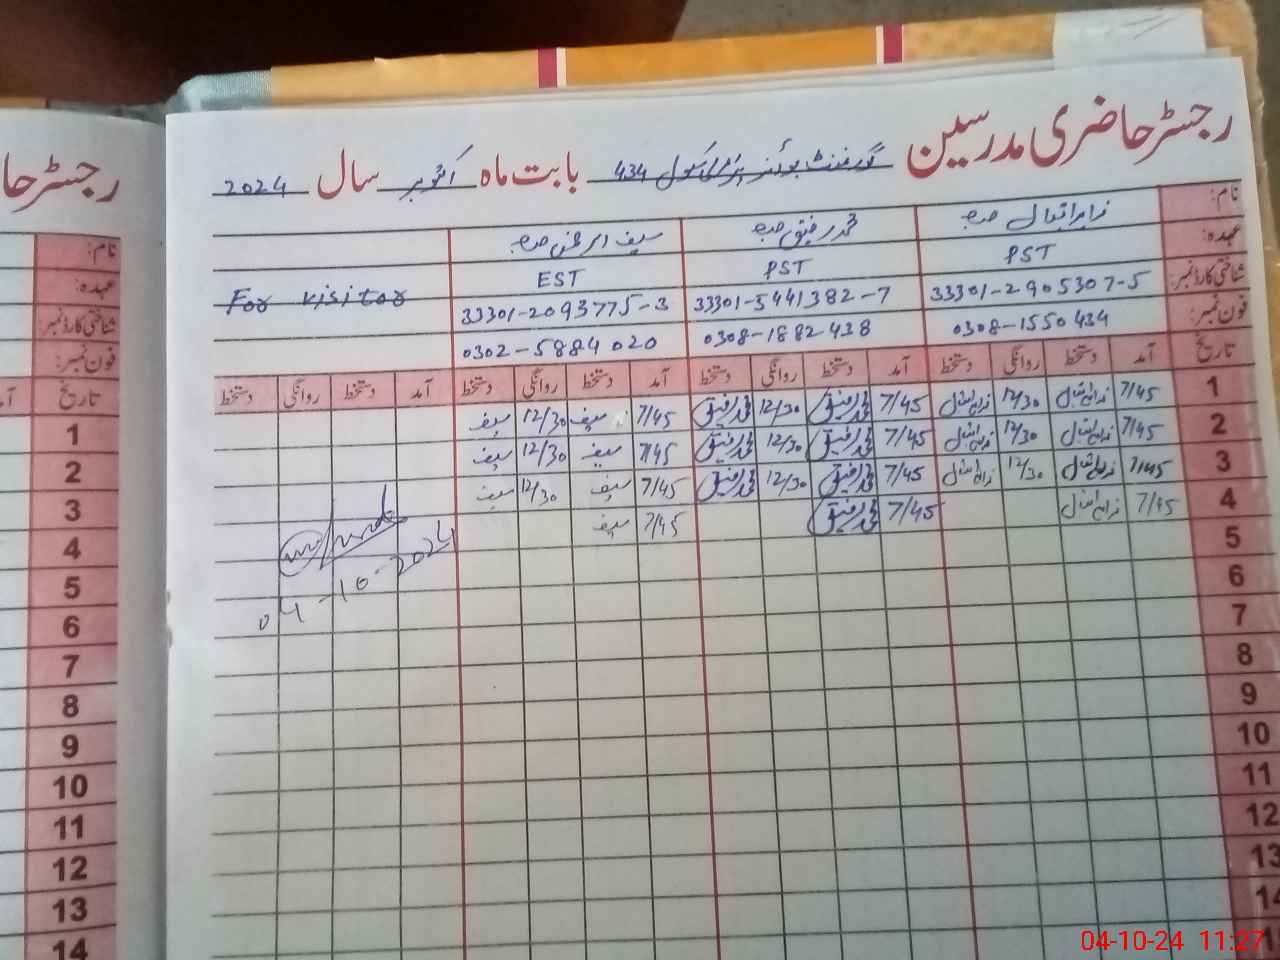 رجسٹر حاضری مدرسین گورنمنٹ بوائز پرائمری سکول 434 بابت ماہ اکتوبر سال 2024
نام: زاہد اقبال صاحب محمد رفیق صاحب سیف الرحمٰن صاحب
عہدہ: PST PST EST
شناختی کارڈ نمبر: 33301-2905307-5 33301-5441382-7 33301-2093775-3 For visitor
فون نمبر: 0308-1550434 0308-1882438 0302-5884020
تاریخ آمد دستخط روانگی دستخط آمد دستخط روانگی دستخط آمد دستخط روانگی دستخط آمد دستخط روانگی دستخط
1 7/45 زاہد اقبال 12/30 زاہد اقبال 7/45 محمد رفیق 12/30 محمد رفیق 7/45 سیف 12/30 سیف
2 7/45 زاہد اقبال 12/30 زاہد اقبال 7/45 محمد رفیق 12/30 محمد رفیق 7/45 سیف 12/30 سیف
3 7/45 زاہد اقبال 12/30 زاہد اقبال 7/45 محمد رفیق 12/30 محمد رفیق 7/45 سیف 12/30 سیف
4 7/45 زاہد اقبال 7/45 محمد رفیق 7/45 سیف
04-10-2024
5
6
7
8
9
10
11
12
13
14
رجسٹر حا
نام:
عہدہ:
شناختی کارڈ نمبر:
فون نمبر:
تاریخ
1
2
3
4
5
6
7
8
9
10
11
12
13
14
04-10-24 11:27